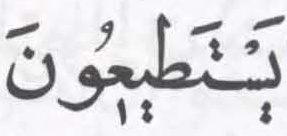 يَسْتَطِيعُونَ